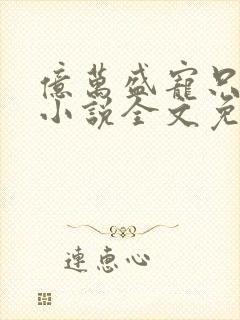 億萬盛寵只
小說全文免
連惠心